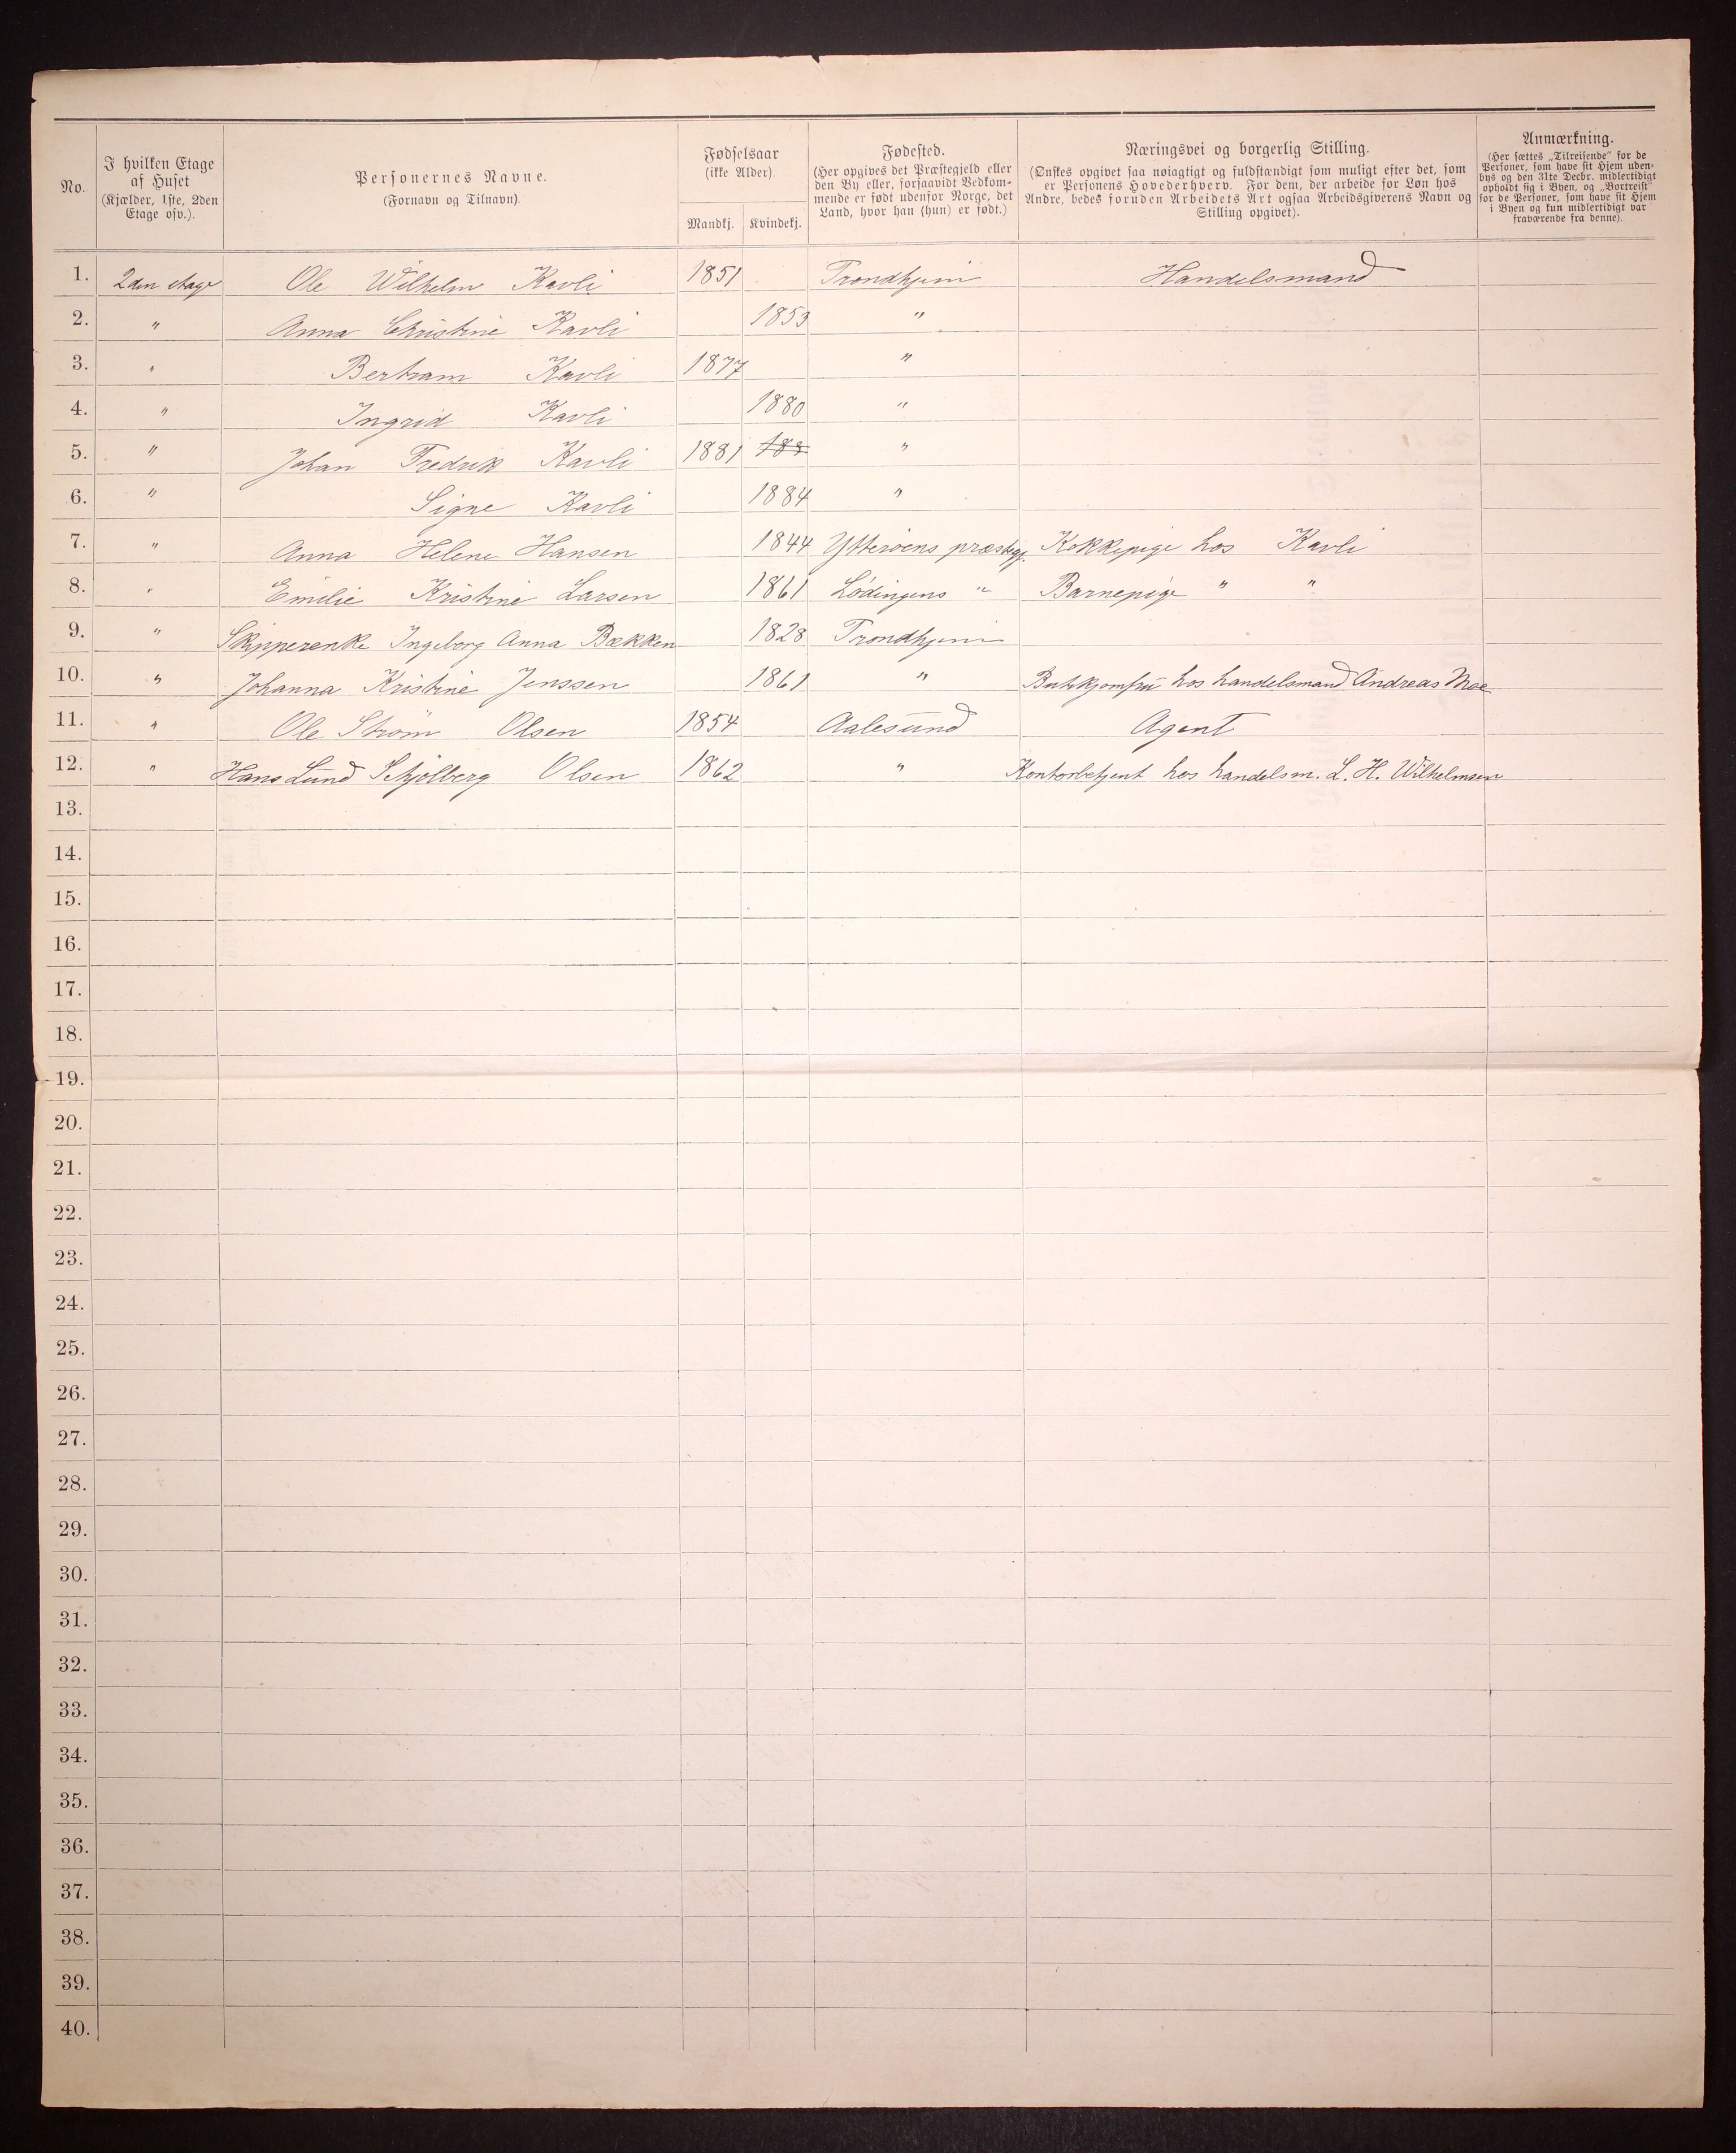 No.
I hvilken Etage
af Huset
(Kjælder, 1ste, 2den
Etage osv.).
Personernes Navne.
(Fornavn og Tilnavn).
Fødselsaar
(ikke Alder)
Mandkj. Kvindekj.
Fødested.
(Her opgives det Præstegjeld eller
den By eller, forsaavidt Vedkom-
mende er født udenfor Norge, det
Land, hvor han (hun) er født.)
Næringsvei og borgerlig Stilling.
(Ønskes opgivet saa nøiagtigt og fuldstændigt som muligt efter det, som
er Personens Hovederhverv. For dem, der arbeide for Løn hos
Andre, bedes foruden Arbeidets Art ogsaa Arbeidsgiverens Navn og
Stilling opgivet).
Anmærkning.
(Her sættes „Tilreisende" for de
Personer, som have sit Hjem uden-
bys og den 31te Decbr. midlertidigt
opholdt sig i Byen, og „Bortreist"
for de Personer, som have sit Hjem
i Byen og kun midlertidigt var
fraværende fra denne).
1. 2den etage Ole Wilhelm Kavli 1851 Trondhjem Handelsmand
2. " Anna Christine Kavli 1853 "
3. " Bertram Kavli 1877 "
4. " Ingrid Kavli 1880 "
5. " Johan Fredrik Kavli 1881 188 "
6. " Signe Kavli 1884 "
7. " Anna Helene Hansen 1844 Ytterøens præstegj. Kokkepige hos Kavli
8. " Emilie Kristine Larsen 1861 Lødingens " Barnepige " "
9. " Skipperenke Ingeborg Anna Bækken 1828 Trondhjem
10. " Johanna Kristine Jenssen 1861 " Butikjomfru hos handelsmand Andreas Moe
11. " Ole Strøm Olsen 1854 Aalesund Agent
12. " Hans Lund Schjølberg Olsen 1862 " Kontorbetjent hos handelsm. L. H. Wilhelmsen
13.
14.
15.
16.
17.
18.
19.
20.
21.
22.
23.
24.
25.
26.
27.
28.
29.
30.
31.
32.
33.
34.
35.
36.
37.
38.
39.
40.